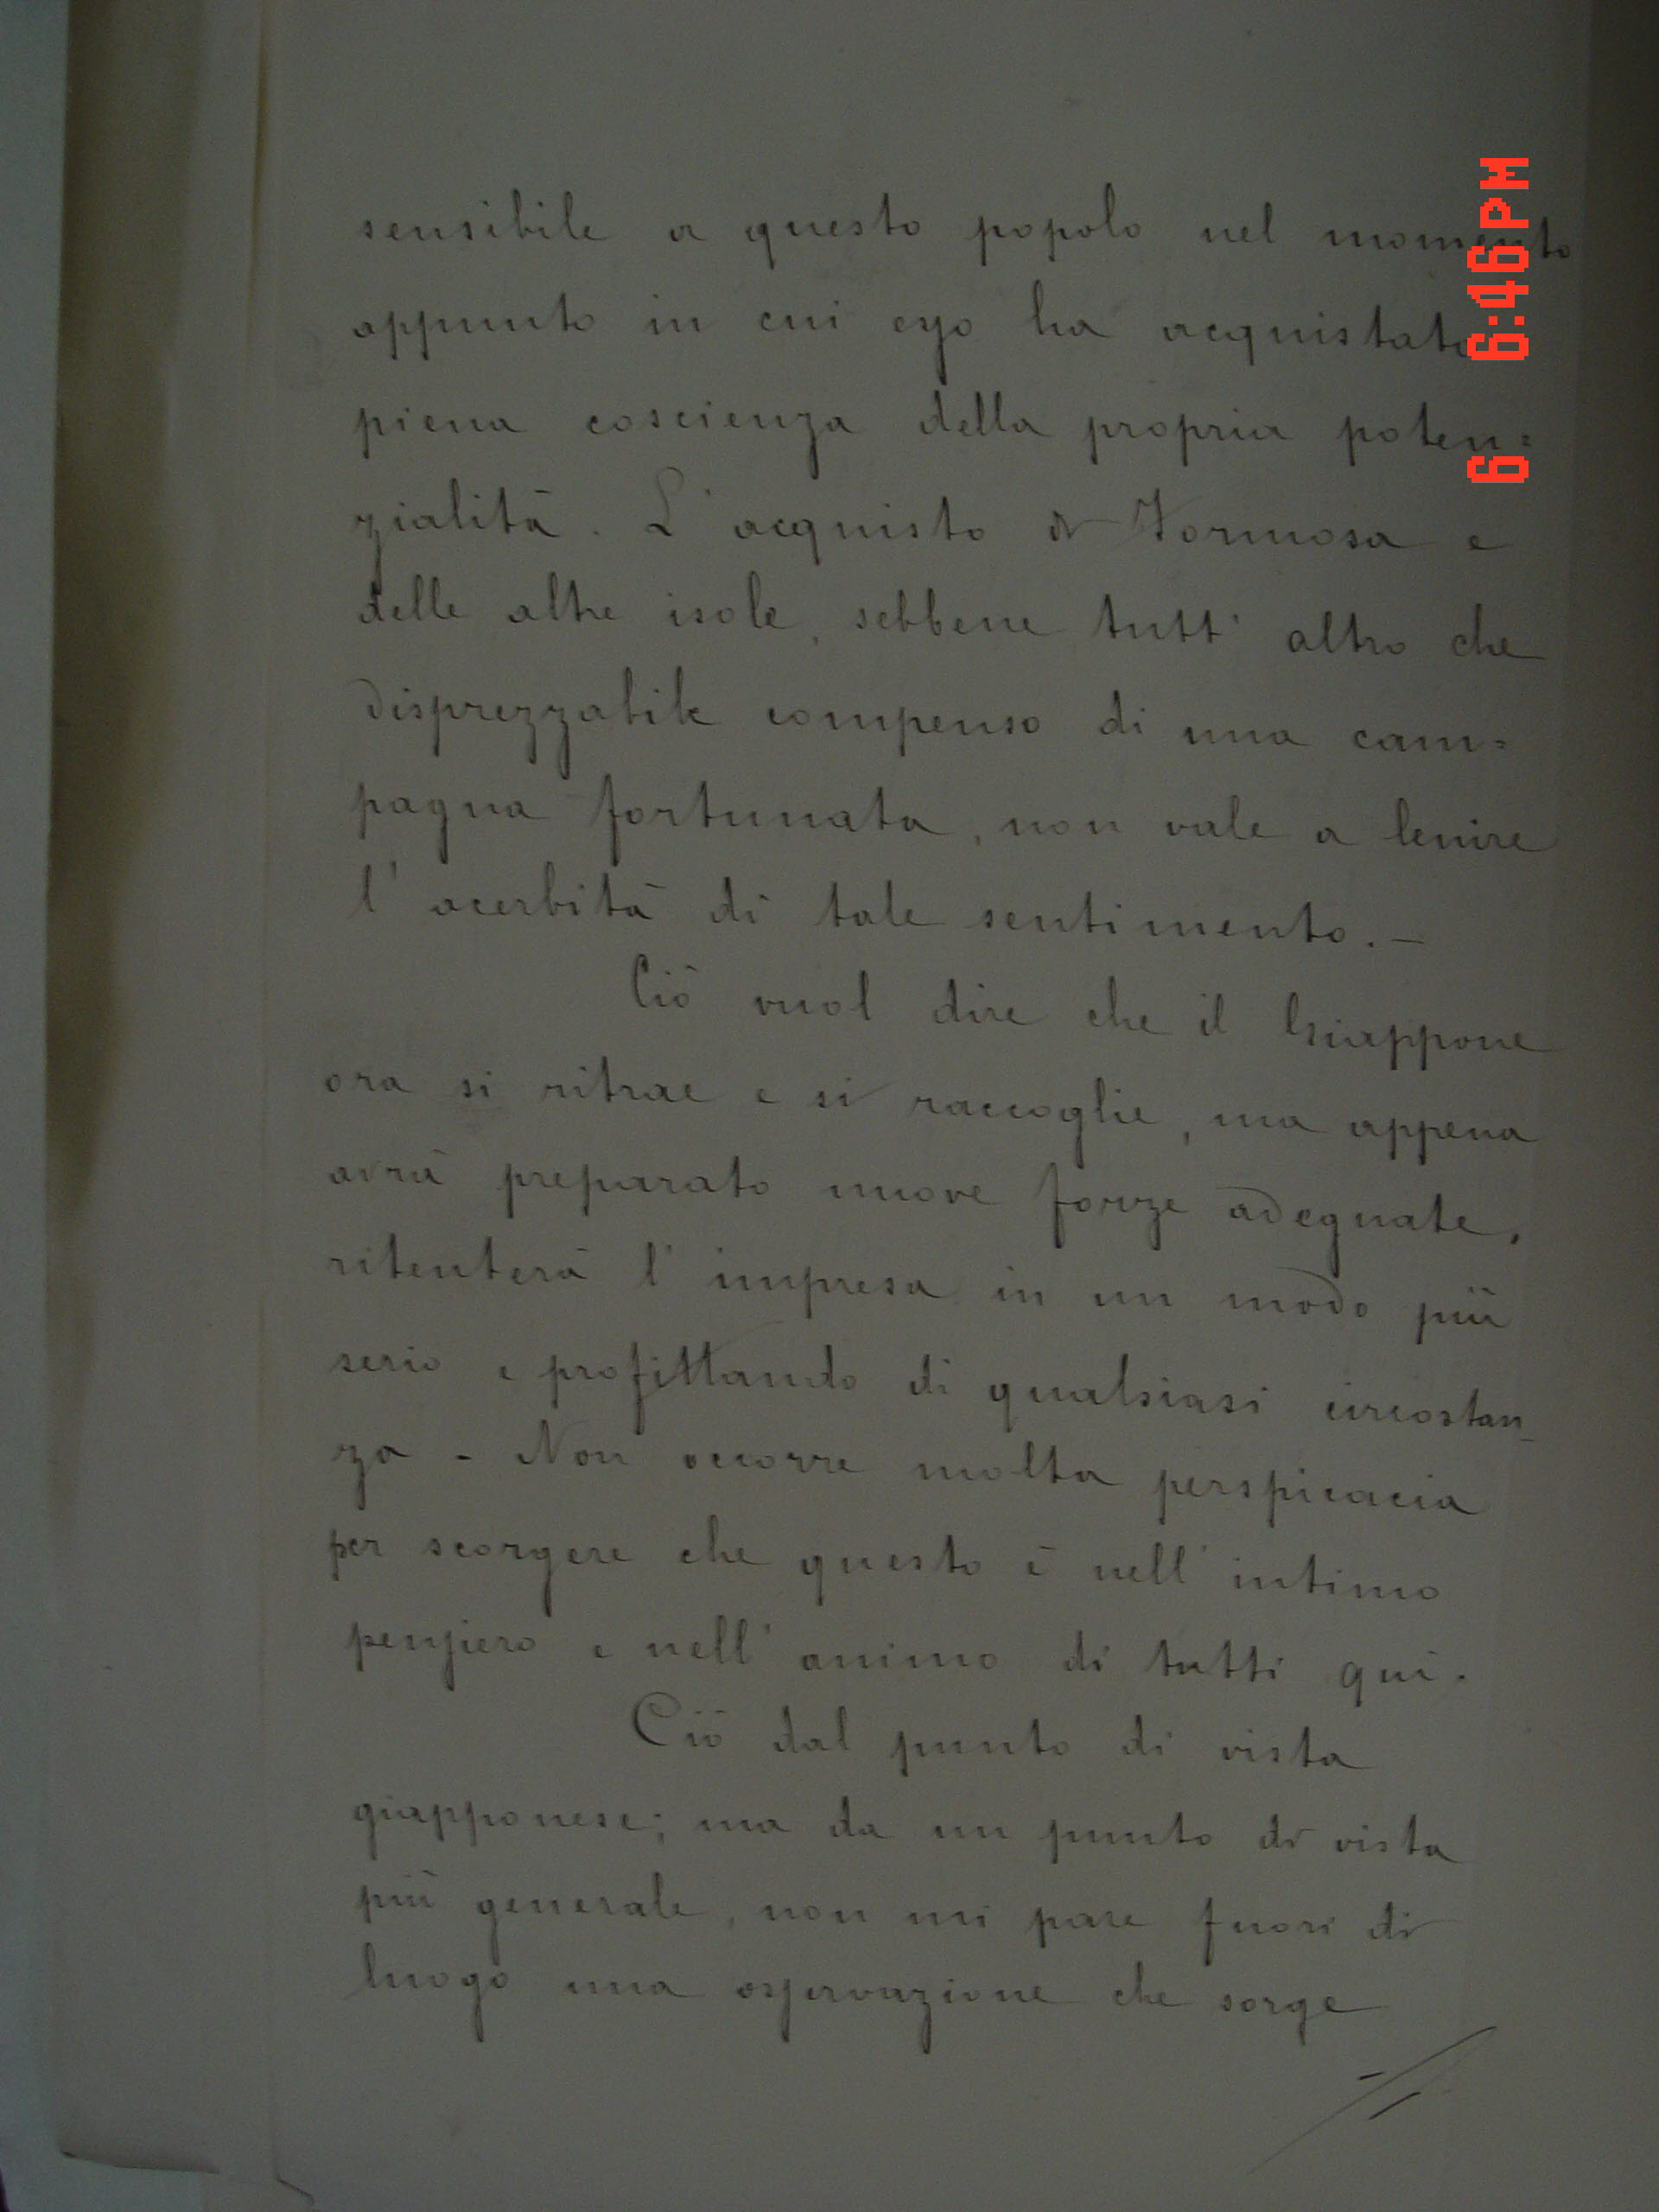 sensibile a questo popolo nel momento
appunto in cui esso ha acquistato
piena coscienza della propria poten=
zialità. L'acquisto di Formosa e
delle altre isole, sebbene tutt'altro che
disprezzabile compenso di una cam=
pagna fortunata, non vale a lenire
l'acerbità di tale sentimento.-
Ciò vuol dire che il Giappone
ora si ritrae e si raccoglie, ma appena
avrà preparato nuove forze adeguate,
ritenterà l'impresa in un modo più
serio e profittando di qualsiasi circostan-
za - Non occorre molta perspicacia
per scorgere che questo è nell'intimo
pensiero e nell'animo di tutti qui.
Ciò dal punto di vista
giapponese; ma da un punto di vista
più generale, non mi pare fuori di
luogo una osservazione che sorge
6 6:46PM